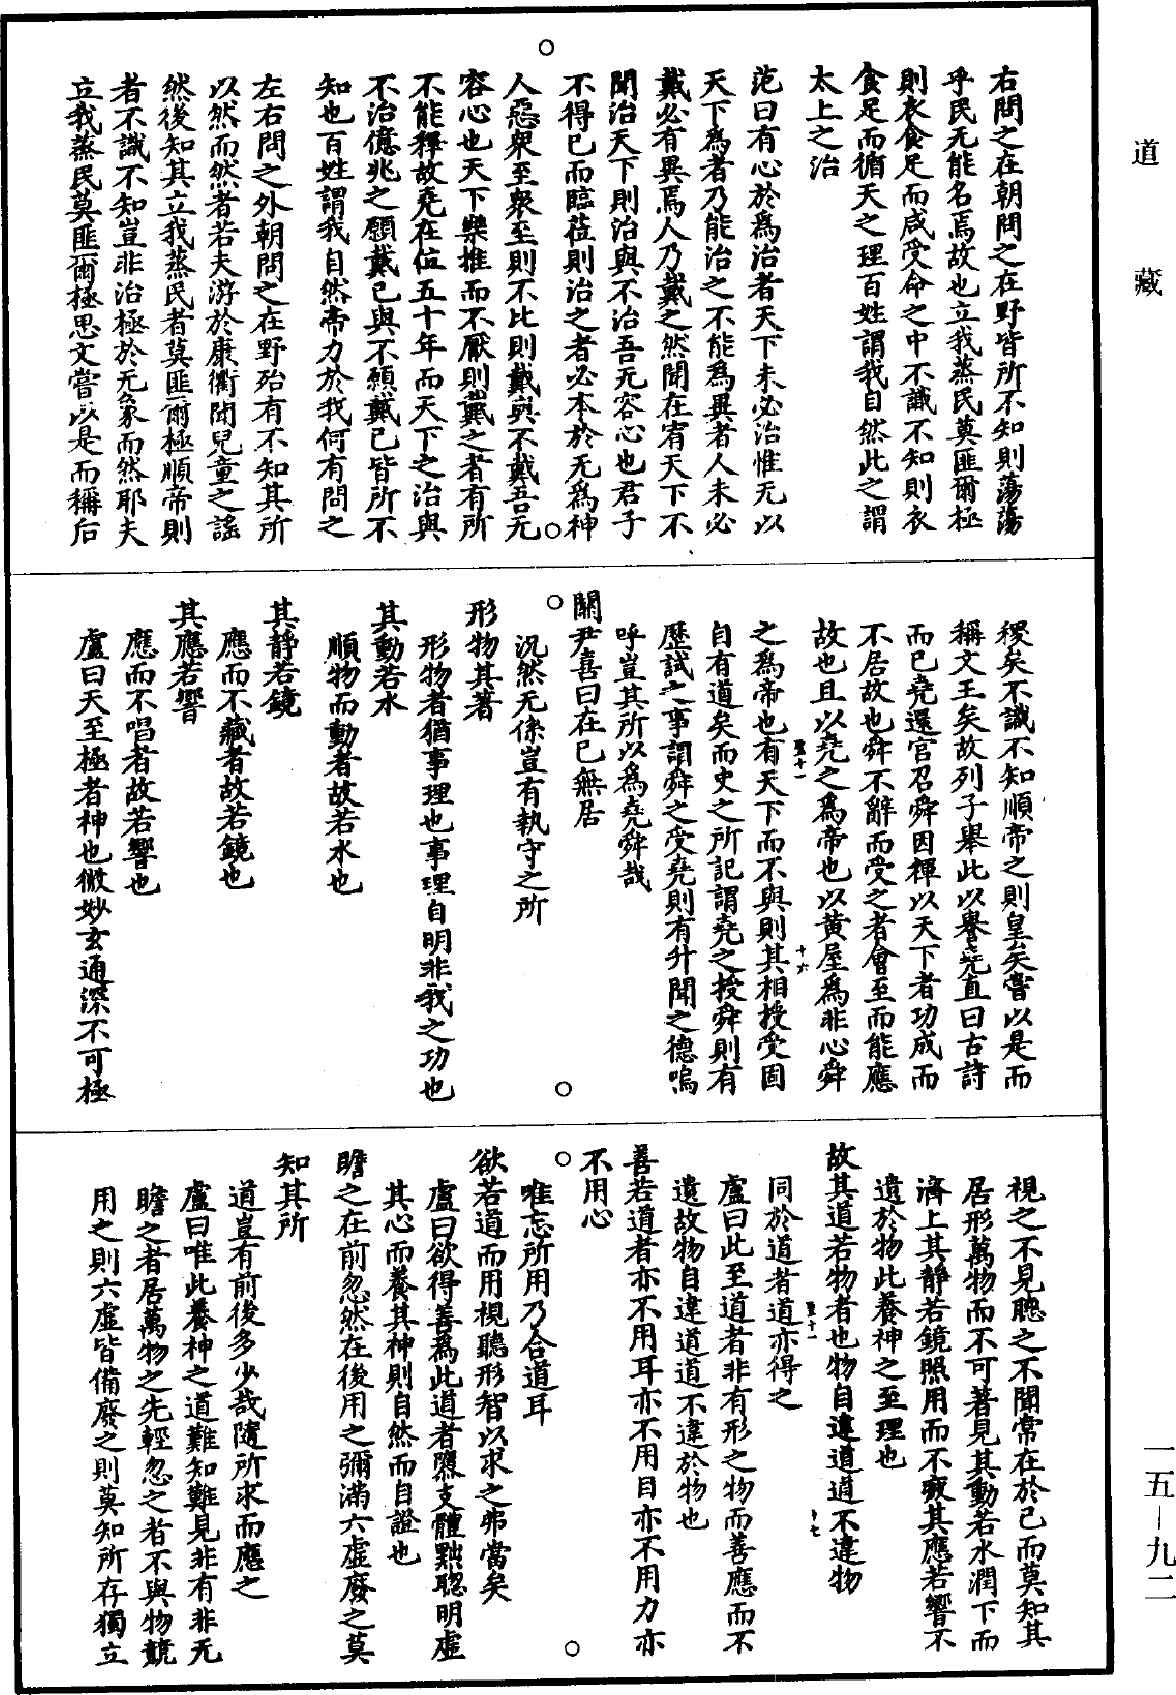 道藏
右問之在朝問之在野皆所不知則蕩蕩
乎民无能名焉故也立我蒸民莫匪爾極
則衣食足而咸受命之中不識不知則衣
食足而循天之理百姓謂我自然此之謂
太上之治
范曰有心於爲治者天下未必治惟无以
天下爲者乃能治之不能爲異者人未必
戴必有異焉人乃戴之然聞在宥天下不
聞治天下則治與不治吾无容心也君子
不得已而臨莅則治之者必本於无爲神
人惡衆至衆至則不比則戴與不戴吾无
容心也天下樂推而不厭則戴之者有所
不能釋故堯在位五十年而天下之治與
不治億兆之願戴已與不願戴已皆所不
知也百姓謂我自然帝力於我何有問之
左右問之外朝問之在野殆有不知其所
以然而然者若夫游於康衢聞兒童之謠
然後知其立我蒸民者莫匪爾極順帝則
者不識不知豈非治極於无象而然耶夫
立我蒸民莫匪爾極思文嘗以是而稱后
稷矣不識不知順帝之則皇矣嘗以是而
稱文王矣故列子舉此以譽堯直曰古詩
而已堯還宮召舜因禪以天下者功成而
不居故也舜不辭而受之者會至而能應
故也且以堯之爲帝也以黃屋爲非心舜
之爲帝也有天下而不與則其相授受固
自有道矣而史之所記謂堯之授舜則有
歷試之事謂舜之受堯則有升聞之德嗚
呼豈其所以爲堯舜哉
關尹喜曰在已無居
汎然无係豈有執守之所
形物其著
形物者猶事理也事理自明非我之功也
其動若水
順物而動者故若水也
其靜若鏡
應而不藏者故若鏡也
其應若響
應而不唱者故若響也
盧曰天至極者神也微妙玄通深不可極
視之不見聽之不聞常在於己而莫知其
居形萬物而不可著見其動若水潤下而
濟上其靜若鏡照用而不疲其應若響不
遺於物此養神之至理也
故其道若物者也物自違道道不違物
同於道者道亦得之
盧曰此至道者非有形之物而善應而不
遺故物自違道道不違於物也
善若道者亦不用耳亦不用目亦不用力亦
不用心
唯忘所用乃合道耳
欲若道而用視聽形智以求之弗當矣
盧曰欲得善爲此道者隳支體黜聰明虛
其心而養其神則自然而自證也
瞻之在前忽然在後用之彌滿六虛廢之莫
知其所
道豈有前後多少哉隨所求而應之
盧曰唯此養神之道難知難見非有非无
瞻之者居萬物之先輕忽之者不與物競
用之則六虛皆備廢之則莫知所存獨立
十六
十七
一五－九二